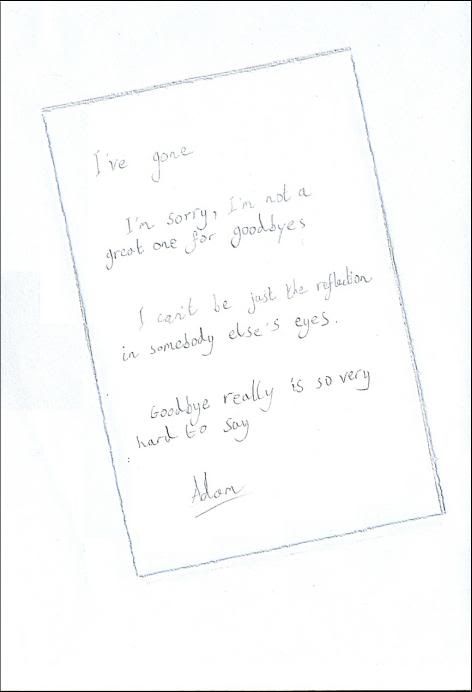 I've gone
I'm sorry, I'm not a
great one for goodbyes
I can't be just the reflection
in somebody else's eyes.
Goodbye really is so very
hard to say
Adam